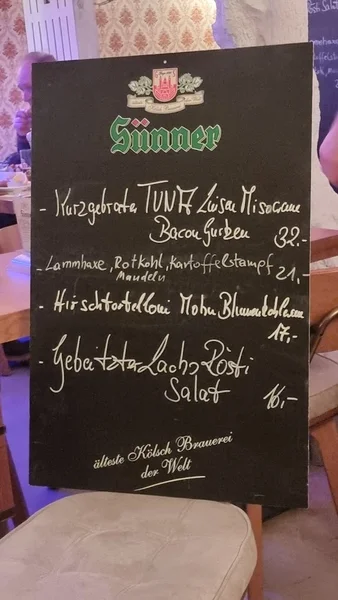 Sünner
- Kurzgebrater TUNA Linsen Misocreme
Bacon Gurken 32.-
- Lammhaxe, Rotkohl, Kartoffelstampf 21,-
Mandeln
- Hirschtortelloni Mohn Blumenkohlcreme
17,-
- Gebeitzter Lachs Rösti
Salat 16,-
älteste Kölsch Brauerei
der Welt